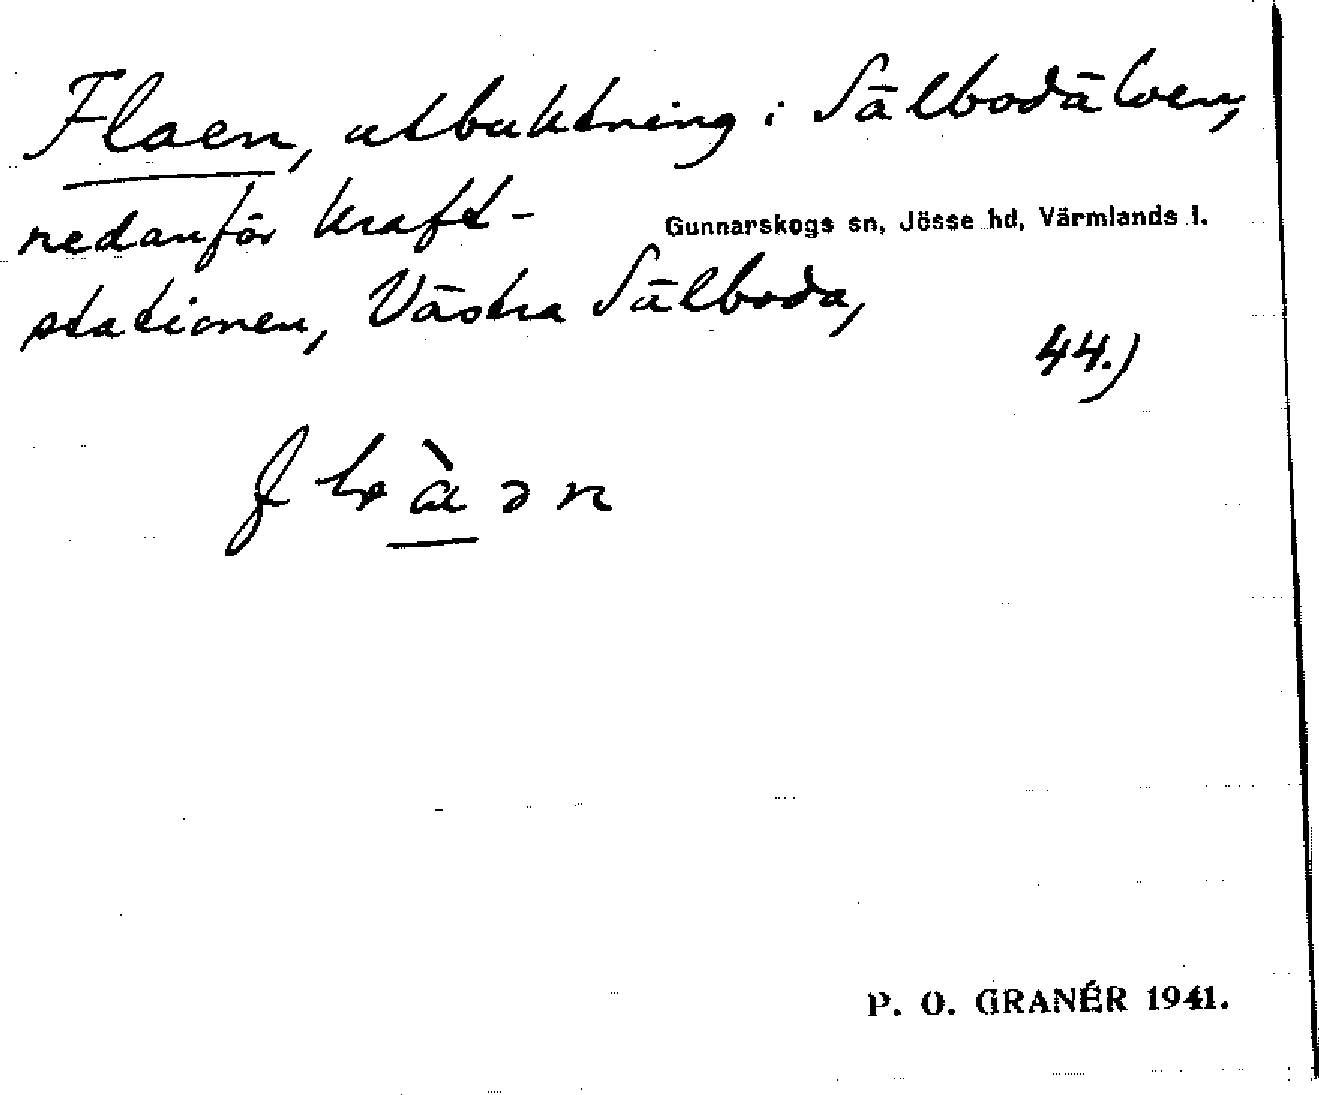 Flaen, utbuktning i Sälbodälven,
nedanför kraft-
Gunnarskogs sn, Jösse hd, Värmlands l.
stationen, Västra Sälboda,
44.)
P. O. GRANÉR 1941.